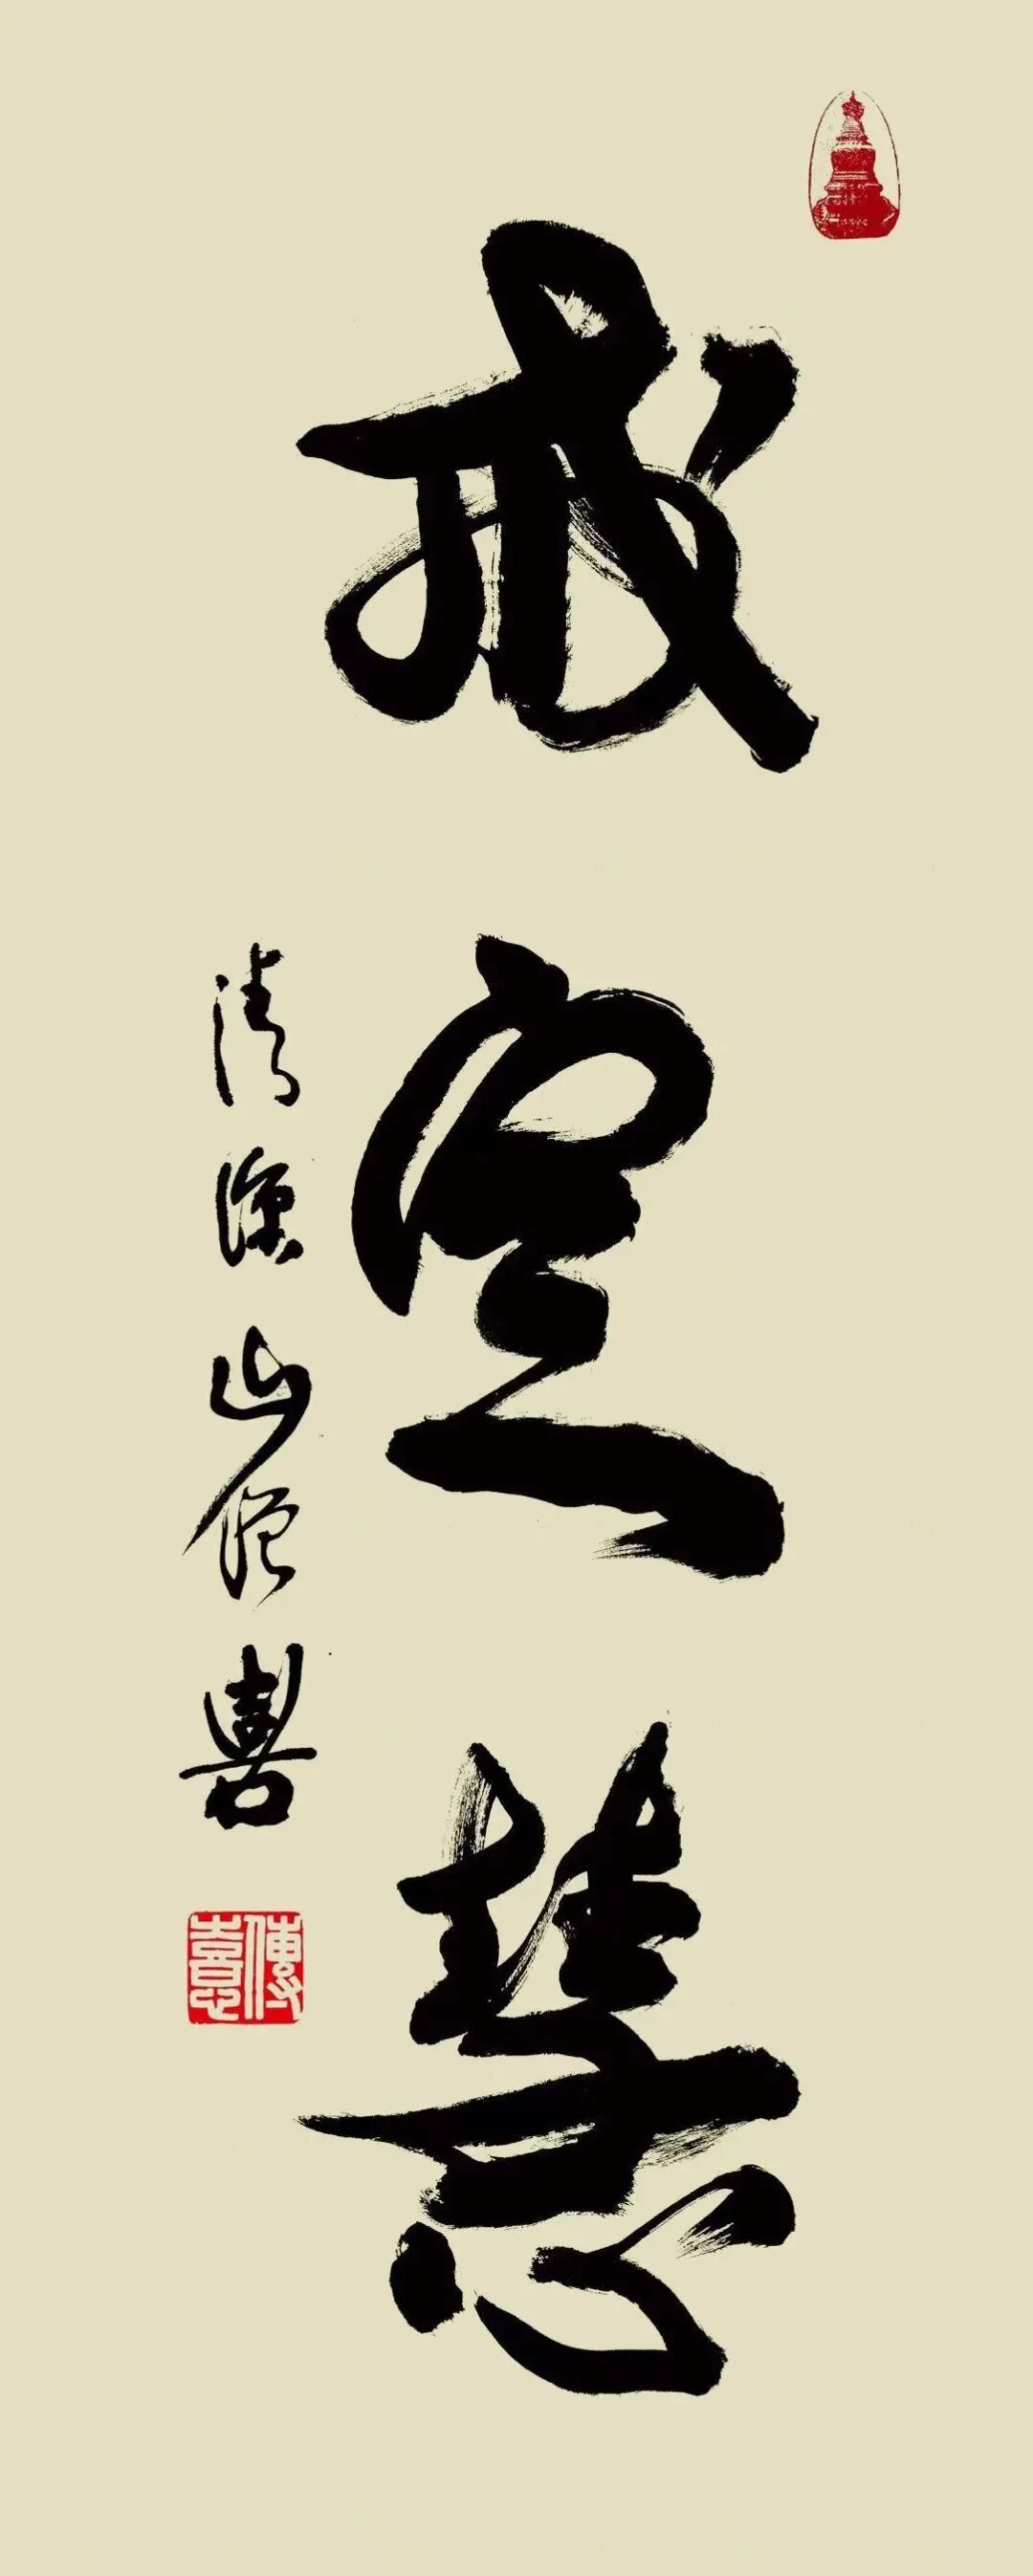 戒定慧
清凉山僧
傳喜